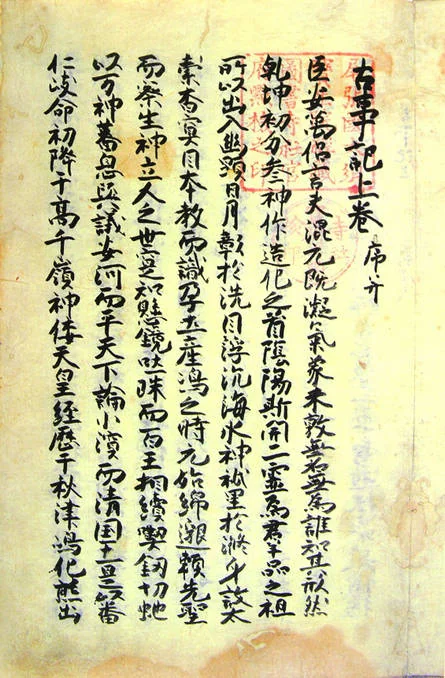 古事記上巻 序并
臣安萬侶言夫混元既凝氣象未敦無名無為誰知其形然
乾坤初分参神作造化之首陰陽斯開二霊為群品之祖
所以出入幽顕日月彰於洗目浮沈海水神祇呈於滌身故太
素杳冥目本教而識孕土産嶋之時元始綿邈頼先聖
而察生神立人之世寔知懸鏡吐珠而百王相續喫釼切虵
以万神蕃息與議安河而平天下論小濱而清国土是以番
仁岐命初降于高千嶺神倭天皇経歴于秋津嶋化熊出